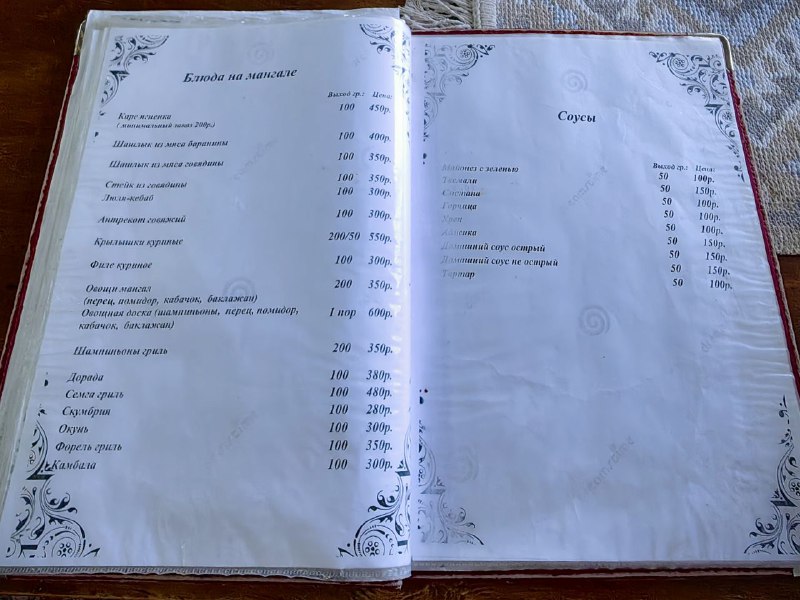 Блюда на мангале
Выход гр.: Цена:
Каре ягненка 100 450р.
(минимальный заказ 200р.)
Шашлык из мяса баранины 100 400р.
Шашлык из мяса говядины 100 350р.
Стейк из говядины 100 350р.
Люля-кебаб 100 300р.
Антрекот говяжий 100 300р.
Крылышки куриные 200/50 550р.
Филе куриное 100 300р.
Овощи мангал 200 350р.
(перец, помидор, кабачок, баклажан)
Овощная доска (шампиньоны, перец, помидор, 1 пор 600р.
кабачок, баклажан)
Шампиньоны гриль 200 350р.
Дорада 100 380р.
Семга гриль 100 480р.
Скумбрия 100 280р.
Окунь 100 300р.
Форель гриль 100 350р.
Камбала 100 300р.
Соусы
Выход гр.: Цена:
Майонез с зеленью 50 100р.
Ткемали 50 150р.
Сметана 50 100р.
Горчица 50 100р.
Хрен 50 100р.
Аджика 50 150р.
Домашний соус острый 50 150р.
Домашний соус не острый 50 150р.
Тартар 50 100р.